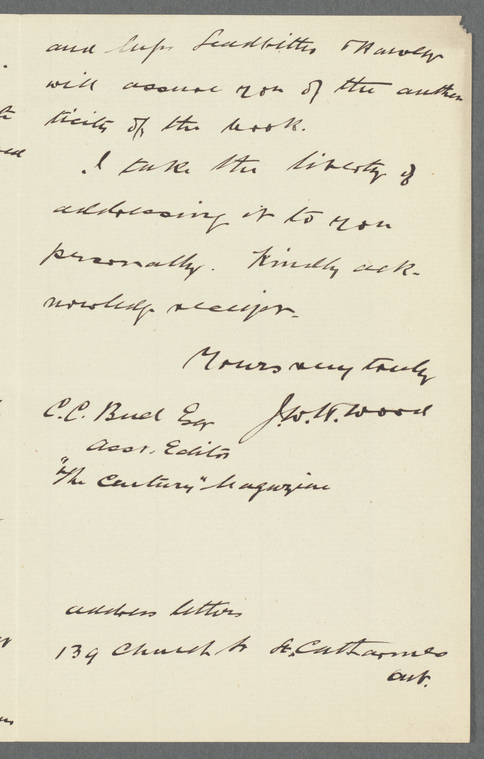 and Leadbitter & Harvey
will assure you of the authen
ticity of the book.
I take the liberty of
addressing it to you
personally. Kindly ack-
nowledge receipt.
Yours very truly
J.W.H. Wood
C.C. Buel Esq
Asst. Editor
"The Century" Magazine
address letters
139 Church St St. Catharines
Ont.